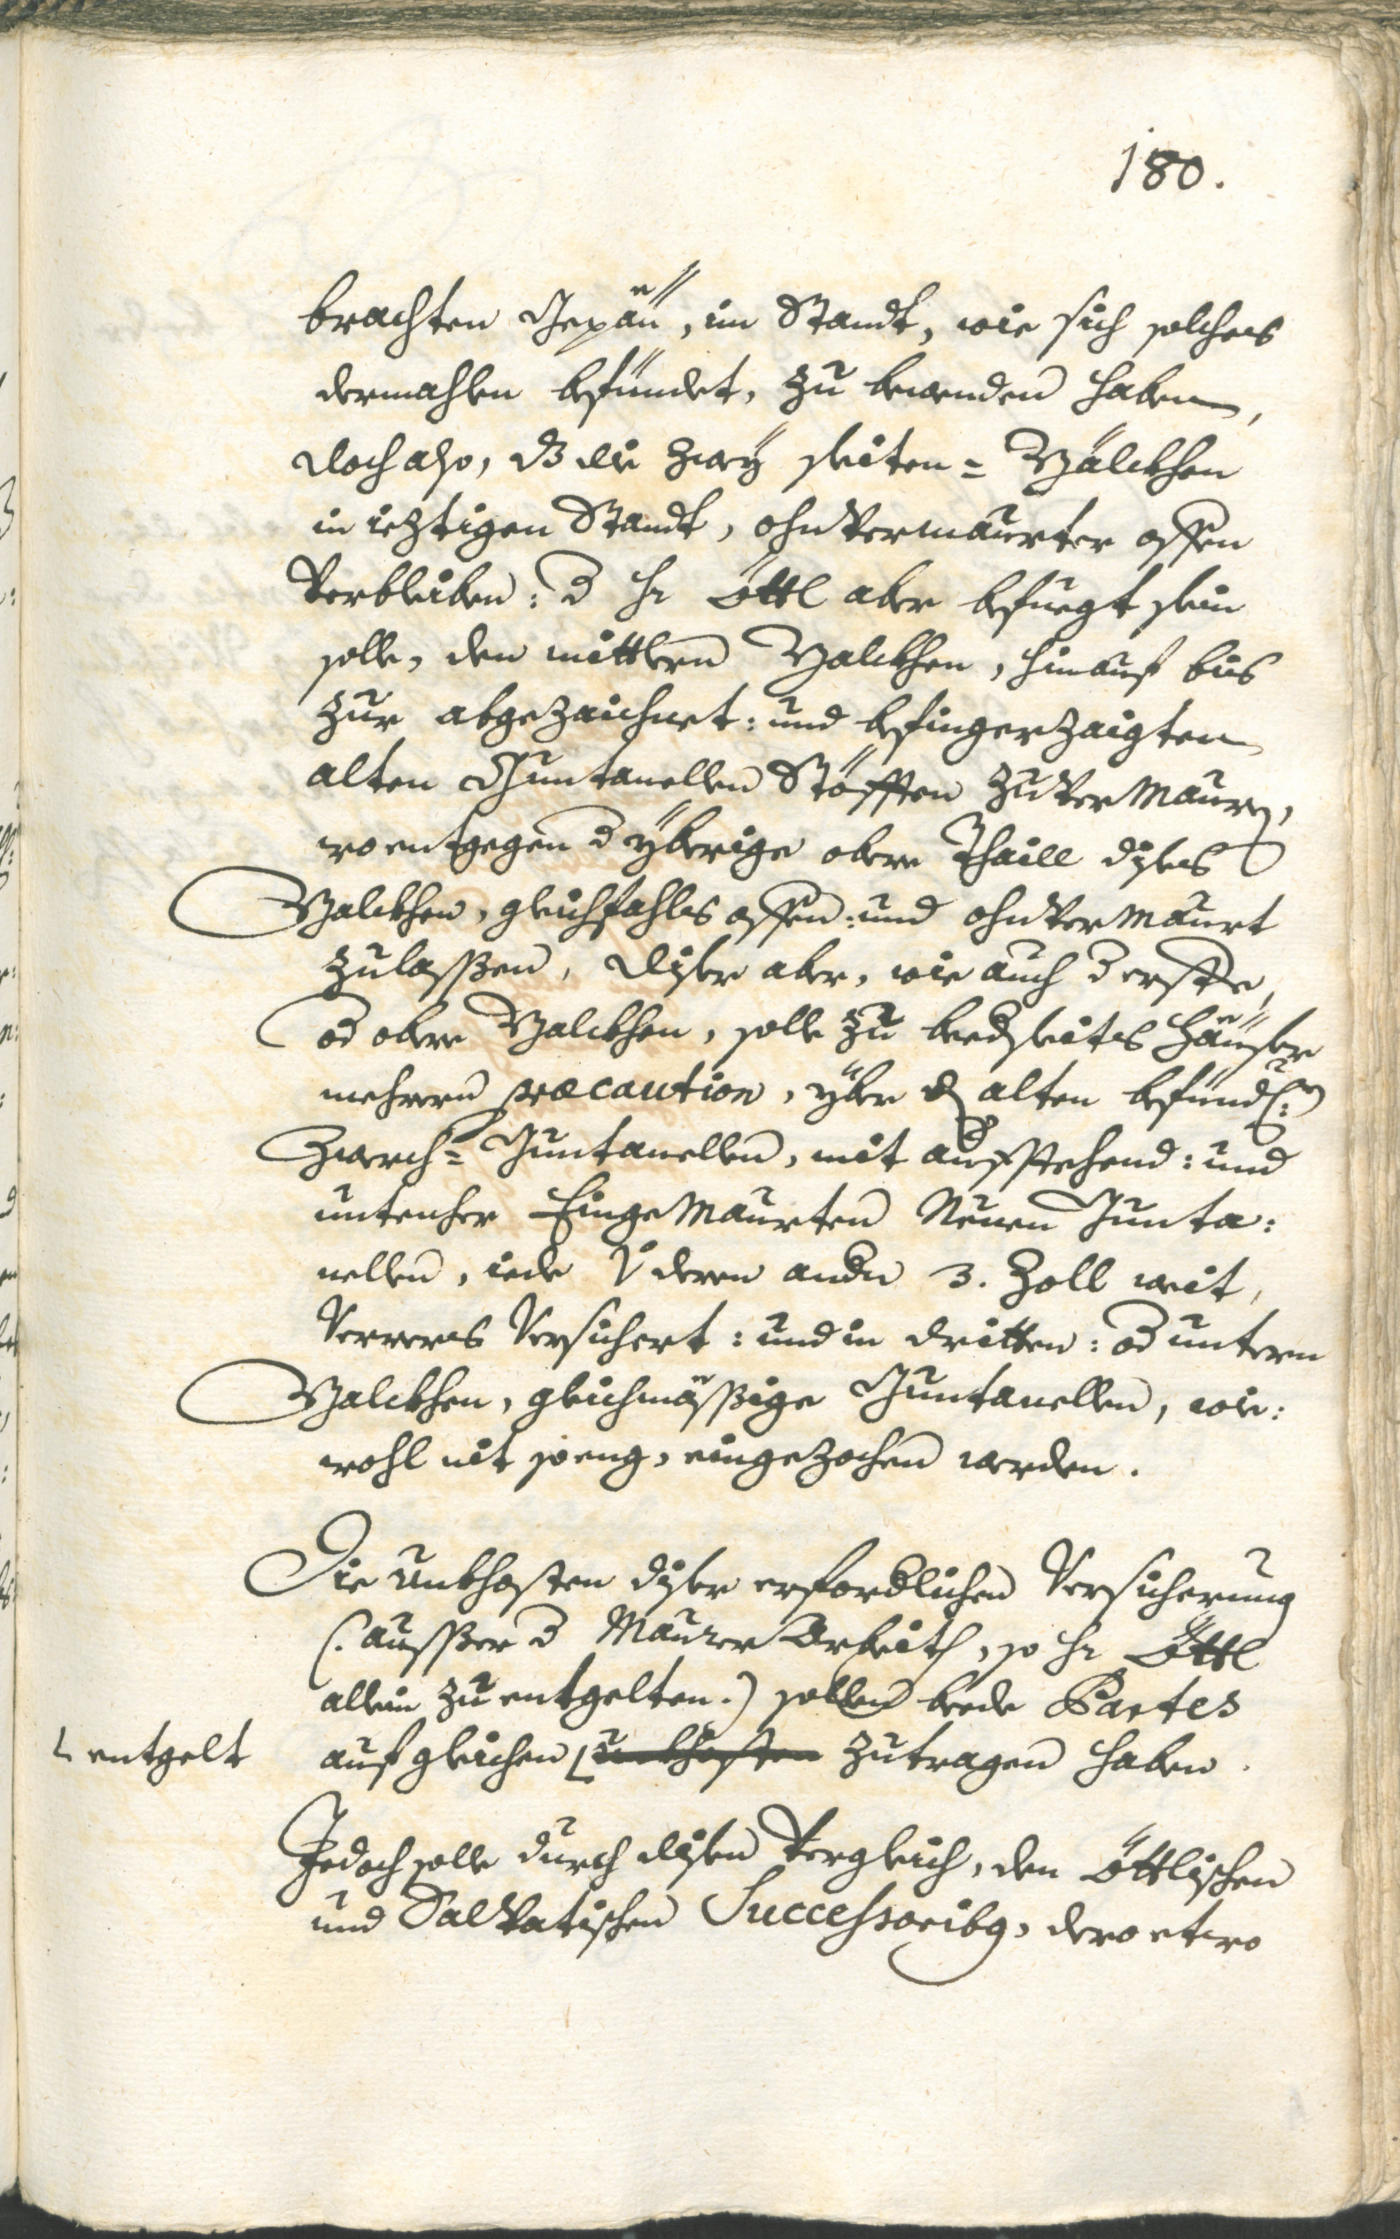 180.
brachten Gepäu, im Standt, wie sich solches
dermahlen befündet, zu bewenden haben,
doch also, dß die zwey seiten= Välckhen
in ieztigen Standt, ohnvermaurter offen
verbleiben: d Hr Öttl aber befuegt sein
solle, den mittlern Valckhen, hinauf bis
zur abgezaichnet: und befingerzaigten
alten Schuntanellen zuvermauren,
wo entgegen d yberige obere Thaill dises
Valckhen, gleichfahls offen: und ohnvermaurt
zulassen, diser aber, wie auch d erste,
od obere Valckhen, solle zu beedseits Häuser
mehrern præcaution, yber d alten befündl:
Zwerch= Juntanellen, mit aufstehend: und
untenher Eingemaurten Neuen Junta:
nellen, iede v deren andn 3. Zoll weit,
Versichert: und in dritten: od untern
Valckhen, gleichmässige Juntanellen, wie:
wohl nit so eng, eingezochen werden.
Die unkhosten diser erfordlichen Versicherung
(: ausser d Maurer Arbeith, so Hr Öttl
allein zu entgelten.) sollen beede Partes
entgelt auf gleichen unkhosten zutragen haben.
Jedoch solle durch disen Vergleich, den Öttlischen
und Salvatischen Successoribq, dero etwo